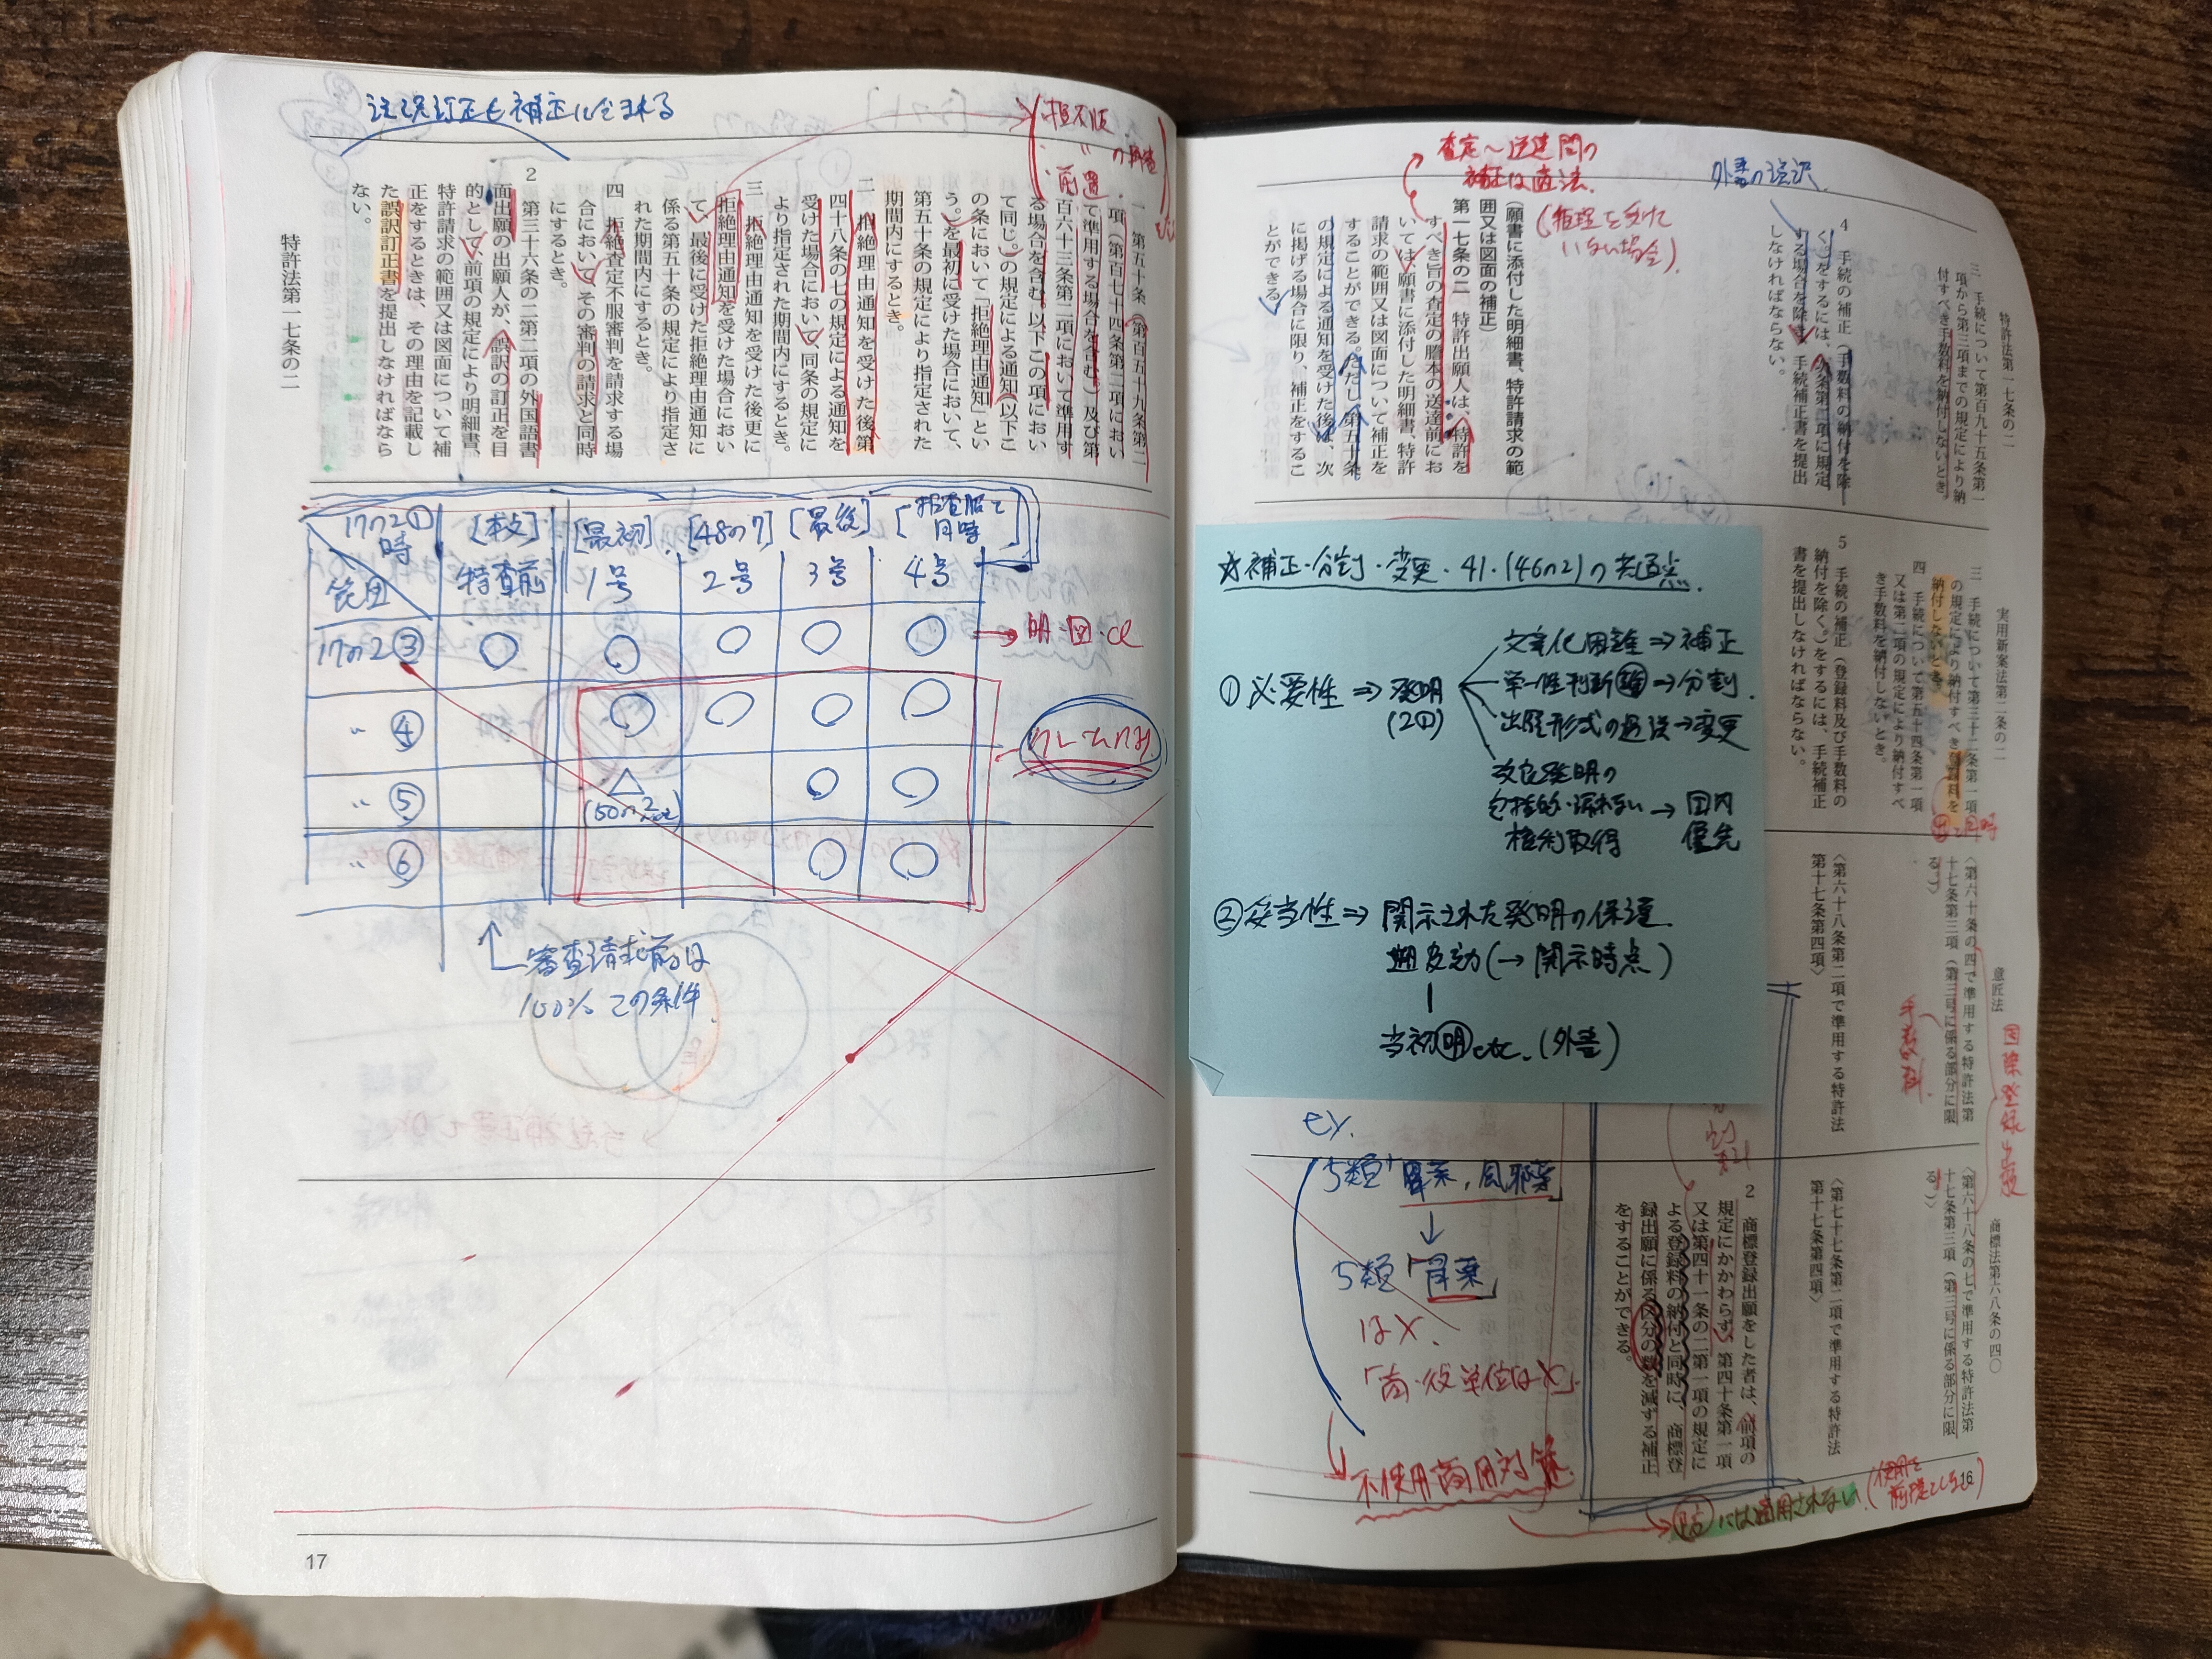 特許法第一七条の二
三　手続について第百九十五条第一
項から第三項までの規定により納
付すべき手数料を納付しないとき。
4　手続の補正（手数料の納付を除
く。）をするには、次条第二項に規定
する場合を除き、手続補正書を提出
しなければならない。
外書の誤訳
査定〜送達間の
補正は適法.
(拒理を受けて
いない場合).
（願書に添付した明細書、特許請求の範
囲又は図面の補正）
第一七条の二　特許出願人は、特許を
すべき旨の査定の謄本の送達前にお
いては、願書に添付した明細書、特許
請求の範囲又は図面について補正を
することができる。ただし、第五十条
の規定による通知を受けた後は、次
に掲げる場合に限り、補正をするこ
とができる。
実用新案法第二条の二
三　手続について第三十二条第一項
の規定により納付すべき登録料を
納付しないとき。
四　手続について第五十四条第一項
又は第二項の規定により納付すべ
き手数料を納付しないとき。
5　手続の補正（登録料及び手数料の
納付を除く。）をするには、手続補正
書を提出しなければならない。
☆補正・分割・変更・41・(46の2)の共通点.
①必要性⇒発明
(2①)
文章化困難⇒補正
単一性判断難⇒分割.
出願形式の過誤→変更
改良発明の
包括的・漏れない→国内
権利取得　優先
②妥当性⇒開示された発明の保護.
遡及効(→開示時点)
当初明etc.(外書)
意匠法
〈第六十条の四で準用する特許法第
十七条第三項（第三号に係る部分に限
る。）〉
〈第六十八条第二項で準用する特許法
第十七条第四項〉
手数料
国際登録出願
商標法第六八条の四〇
〈第六十八条の七で準用する特許法第
十七条第三項（第三号に係る部分に限
る。）〉
〈第七十七条第二項で準用する特許法
第十七条第四項〉
2　商標登録出願をした者は、前項の
規定にかかわらず、第四十条第一項
又は第四十一条の二第一項の規定に
よる登録料の納付と同時に、商標登
録出願に係る区分の数を減ずる補正
をすることができる。
ex.
5類「胃薬,風邪薬」
↓
5類「胃薬」
は×.
「商・役単位は×」
不使用商標対策.
防には適用されない.
(使用を
前提としない)
16
誤訳訂正も補正に含まれる
一　第五十条（第百五十九条第二
項（第百七十四条第二項におい
て準用する場合を含む。）及び第
百六十三条第二項において準用す
る場合を含む。以下この項におい
て同じ。）の規定による通知（以下こ
の条において「拒絶理由通知」とい
う。）を最初に受けた場合において、
第五十条の規定により指定された
期間内にするとき。
二　拒絶理由通知を受けた後第
四十八条の七の規定による通知を
受けた場合において、同条の規定に
より指定された期間内にするとき。
三　拒絶理由通知を受けた後更に
拒絶理由通知を受けた場合におい
て、最後に受けた拒絶理由通知に
係る第五十条の規定により指定さ
れた期間内にするとき。
四　拒絶査定不服審判を請求する場
合において、その審判の請求と同時
にするとき。
2　第三十六条の二第二項の外国語書
面出願の出願人が、誤訳の訂正を目
的として、前項の規定により明細書、
特許請求の範囲又は図面について補
正をするときは、その理由を記載し
た誤訳訂正書を提出しなければなら
ない。
特許法第一七条の二
17の2①時　[本文]　[最初]　[48の7]　[最後]　[拒査服と同時]
範囲　特査前　1号　2号　3号　4号
17の2③　○　○　○　○　○　→明・図・cl
〃④　○　○　○　○　クレームのみ
〃⑤　△　○　○
(50の2)
〃⑥　○　○
審査請求前は
100%この条件.
17